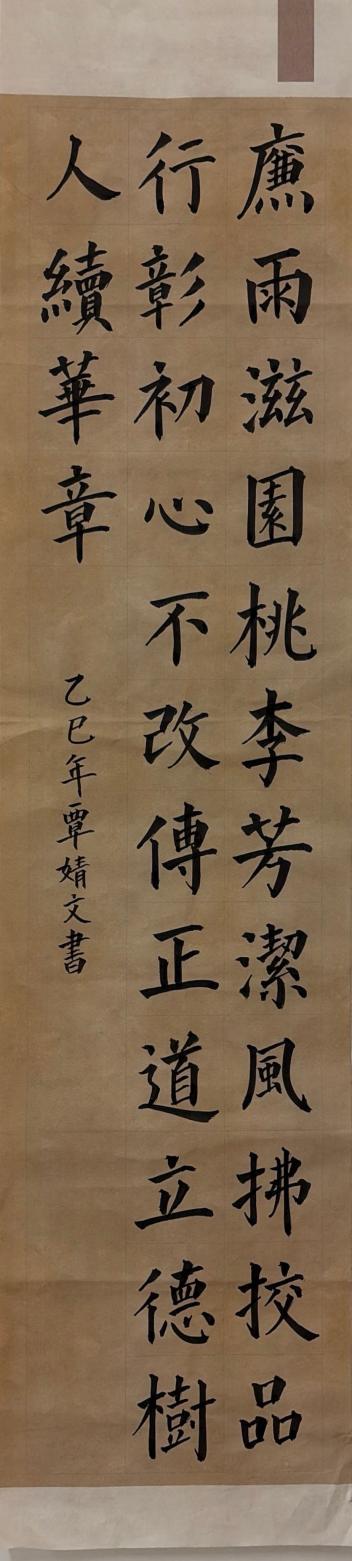 廉雨滋園桃李芳潔風拂挍品
行彰初心不改傳正道立德樹
人續華章
乙巳年覃婧文書